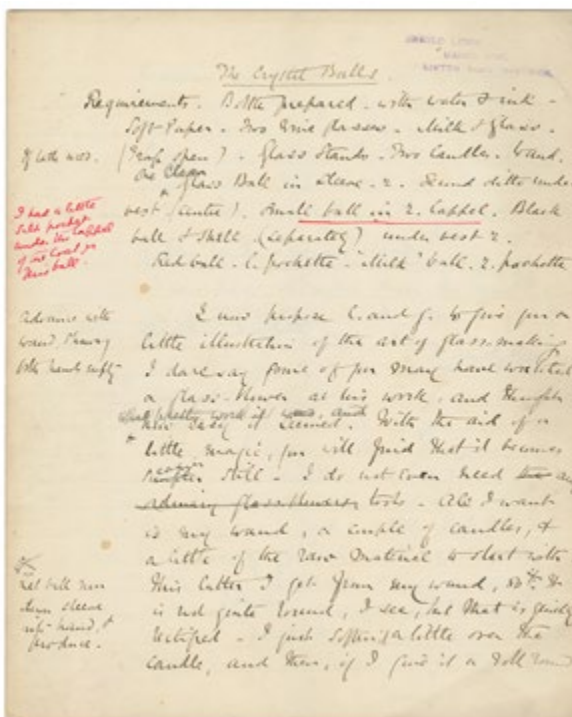 The Crystal Balls.
Requirements. Bottle prepared - with water & ink -
Soft Paper - Two Wine Glasses - Milk & Glass.
Glass Stands - Two Candles. Wand.
One Clear
Glass Ball in sleeve. r. Second ditto under
vest (centre). Small ball in r. Lappel. Black
ball & Shell (separately) under vest r.
Red ball - l. pochette. "Milk" ball. r. pochette
I had a little
silk pocket
under the lappel
of my coat for
this ball.
Advance with
wand, showing
both hands empty
I now propose L. and G. to give you a
little illustration of the art of glass-making
I dare say some of you may have watched
a glass-blower at his work, and thought
what pretty work it was, and
how easy it seemed. With the aid of a
little magic, you will find that it becomes
easier
still - I do not even need the
ordinary glass-blowers tools - All I want
is my wand, a couple of candles, &
a little of the raw material to start with
This latter I get from my wand, so.
is not quite round, I see, but that is quickly
rectified - I just soften it a little over the
candle, and then, if I give it a roll round
Let ball run
down sleeve
into hand, &
produce.